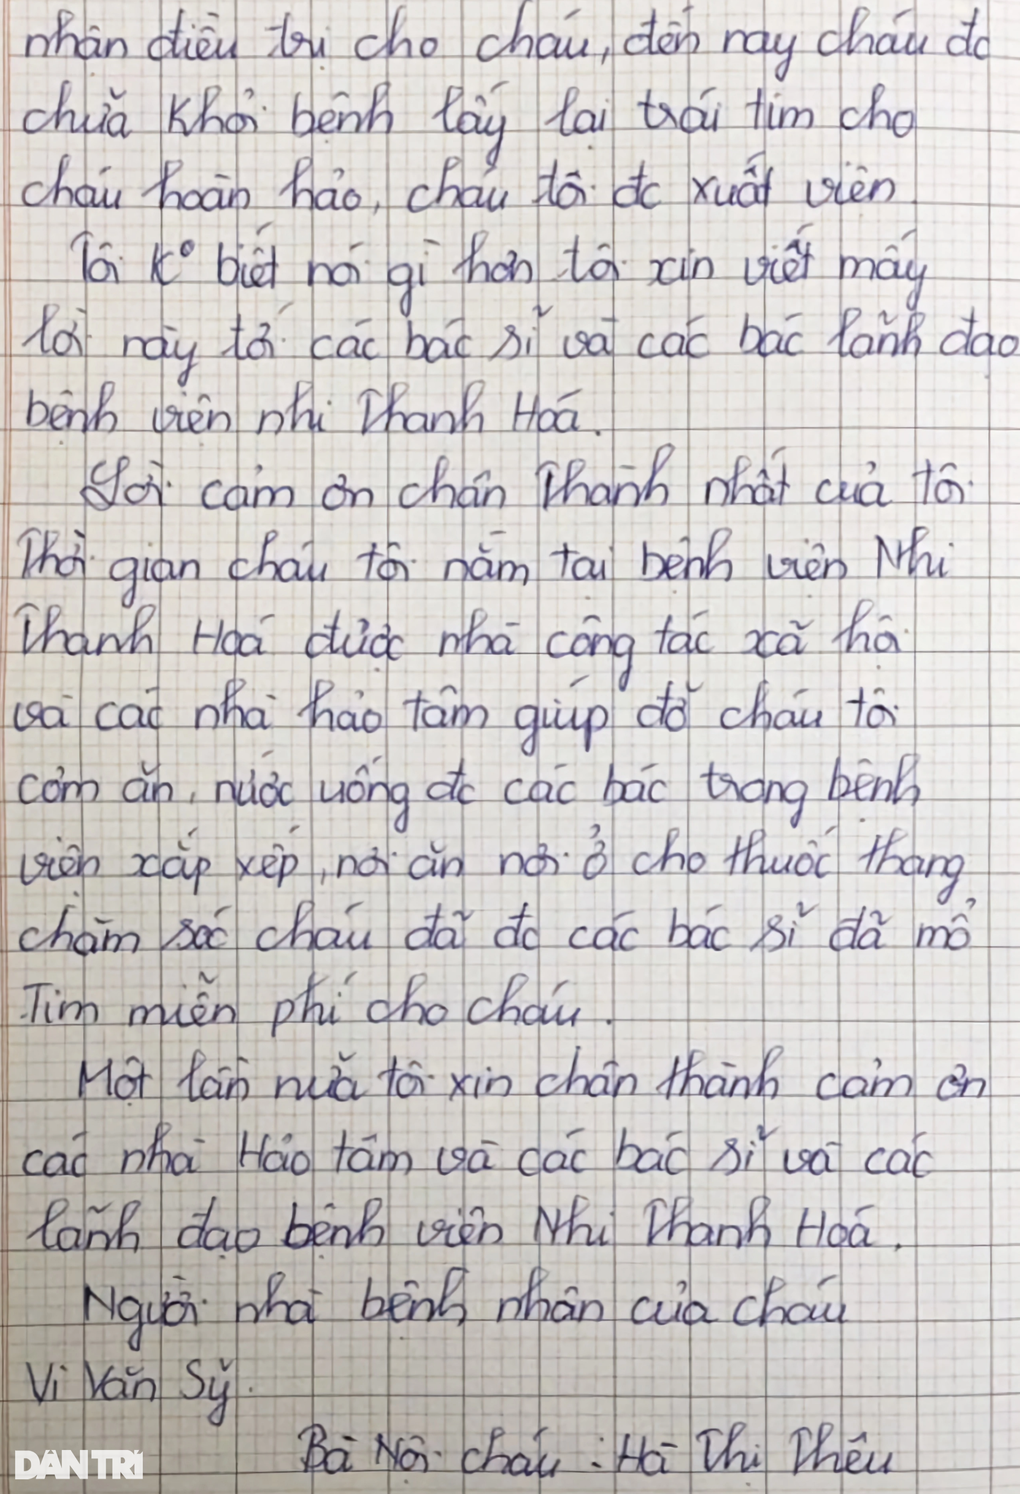 nhân điều trị cho cháu, đến nay cháu đc
chữa khỏi bệnh lấy lại trái tim cho
cháu hoàn hảo, cháu tôi đc xuất viện.
Tôi K° biết nói gì hơn tôi xin viết mấy
lời này tới các bác sĩ và các bác lãnh đạo
bệnh viện nhi Thanh Hoá.
Lời cảm ơn chân Thành nhất của tôi
Thời gian cháu tôi nằm tại bệnh viện Nhi
Thanh Hoá được nhà công tác xã hội
và các nhà hảo tâm giúp đỡ cháu tôi
cơm ăn, nước uống đc các bác trong bệnh
viện xắp xếp, nơi ăn nơi ở cho thuốc thang
chăm sóc cháu đã đc các bác sĩ đã mổ
Tim miễn phí cho cháu.
Một lần nữa tôi xin chân thành cảm ơn
các nhà Hảo tâm và các bác sĩ và các
lãnh đạo bệnh viện Nhi Thanh Hoá.
Người nhà bệnh nhân của cháu
Vi Văn Sỹ.
Bà Nội cháu: Hà Thị Thêu
DÂN TRÍ